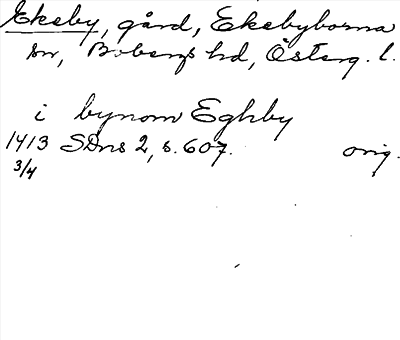 Ekeby, gård, Ekebyborna
sn, Bobergs hd, Österg. l.
i bynom Eghby
1413 SDns 2, s. 607. orig.
3/4